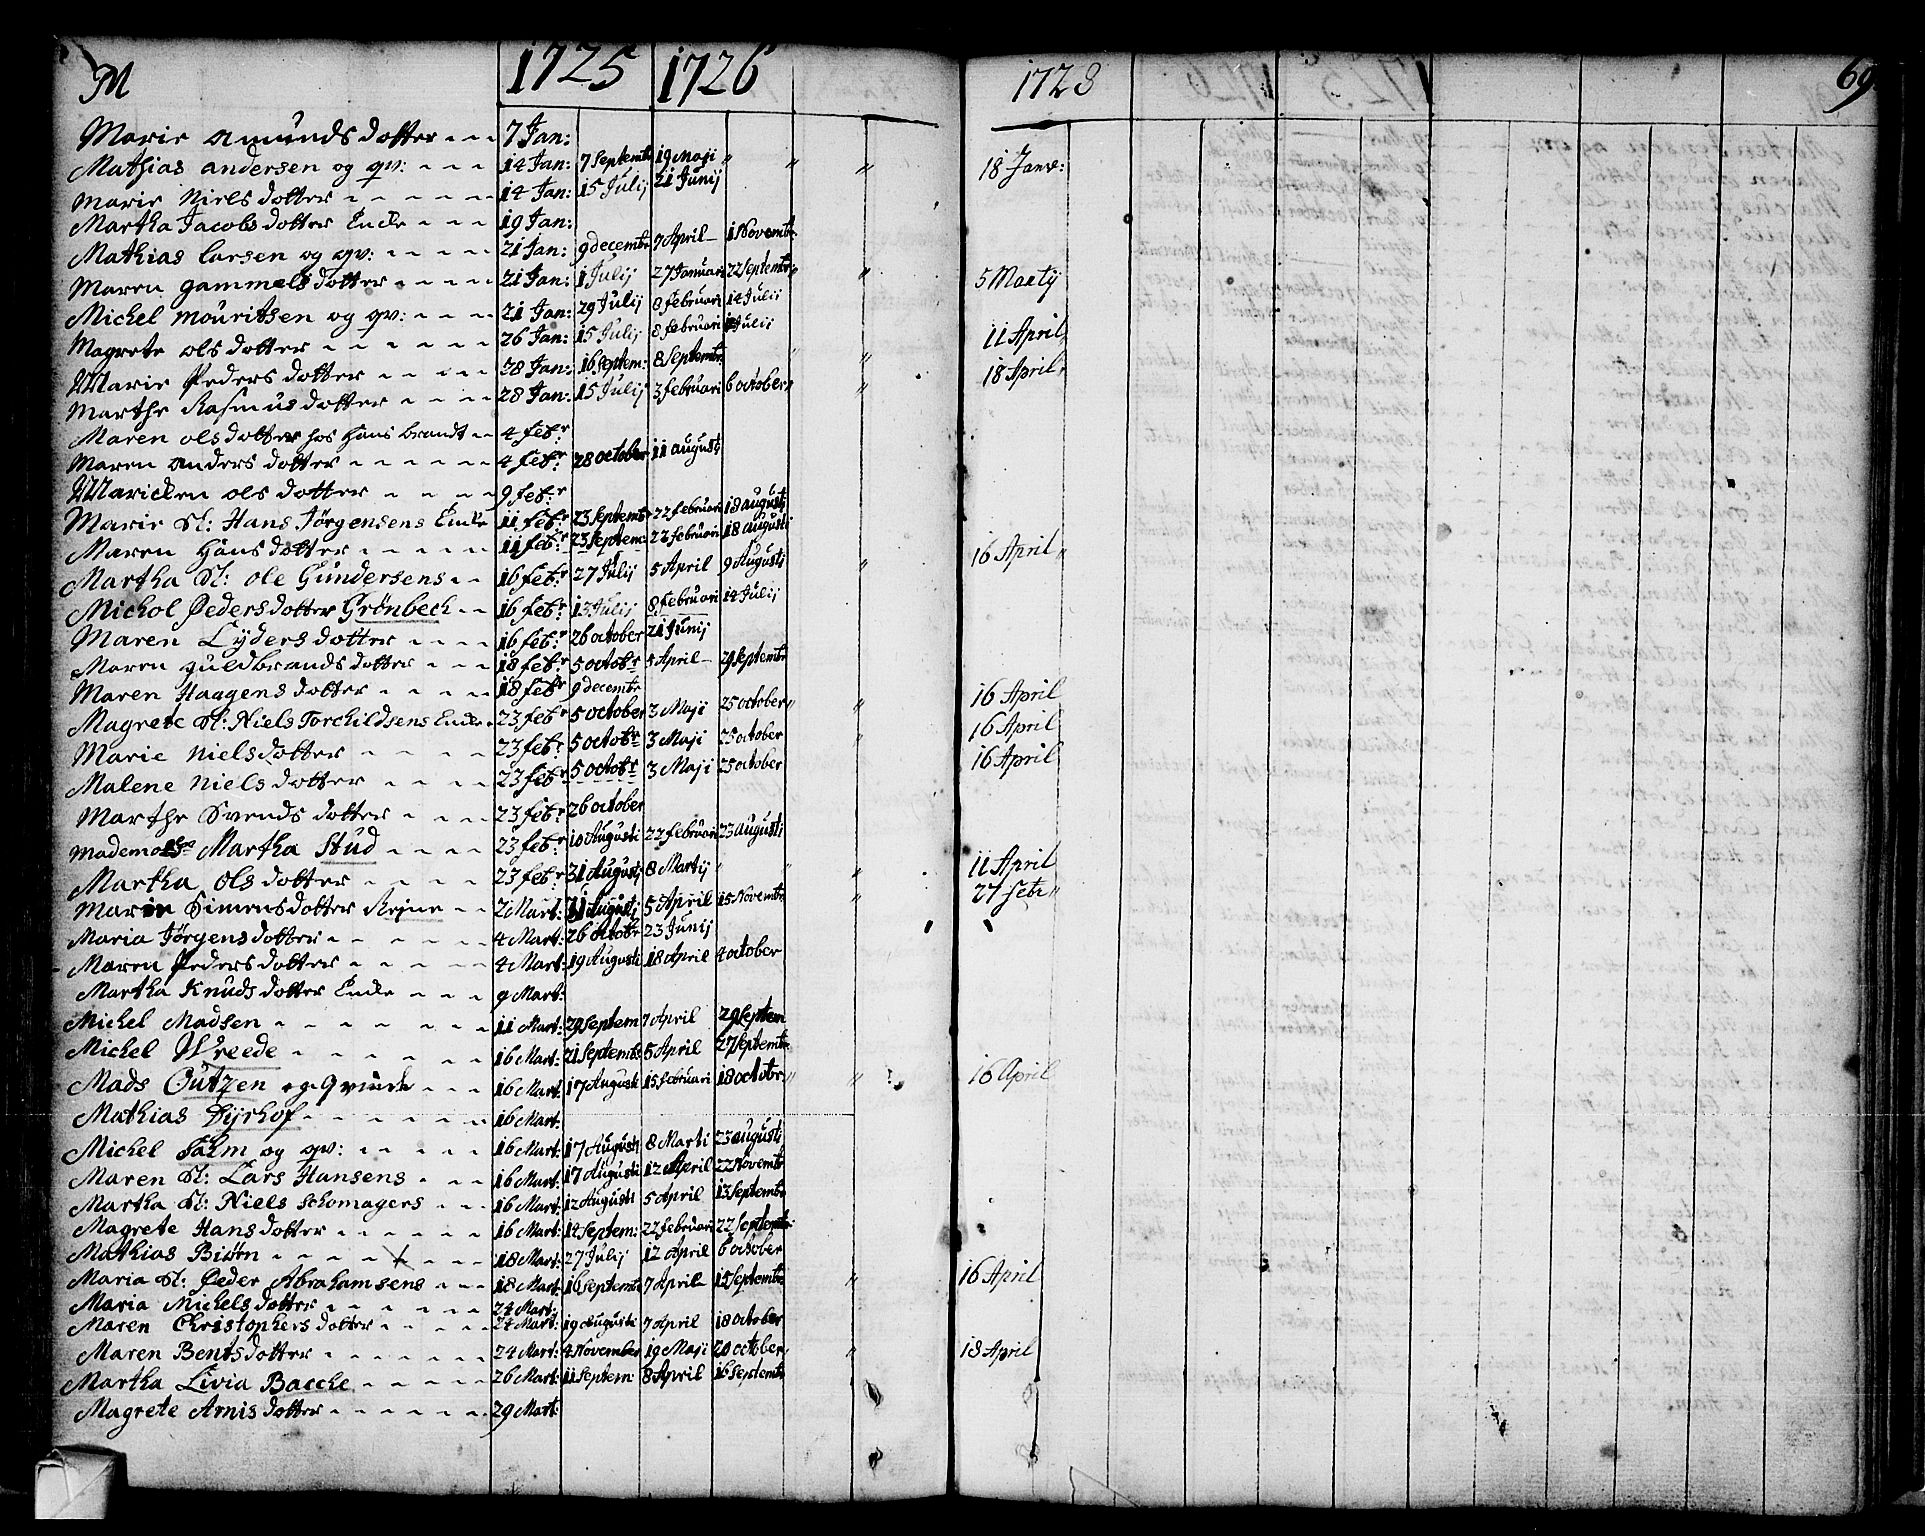 M 1725 1726 1728 69
Marie Amunds dotter 7 Jan:
Mathias andersen og qv: 14 Jan: 7 Septemb 19 Maji " " " 18 Janv:
Marie Niels dotter 14 Jan: 15 Julij 21 Junij
Martha Jacobs dotter Encke 19 Jan:
Mathias Larsen og qv: 21 Jan: 9 decembr 7 April 1 Novembr
Maren gammels dotter 21 Jan: 1 Julij 27 Januari 22 Septembr " " 5 Martij
Michel Mouritsen og qv: 21 Jan: 29 Julij 8 februari 14 Julij
Magrete ols dotter 26 Jan: 15 Julij 8 februari Julij 11 April
Marie Peders dotter 28 Jan: 16 Septem: 8 Septembr " " 18 April
Marthe Rasmus dotter 28 Jan: 15 Julij 3 februari 6 october " "
Maren ols dotter hos Hans brandt 4 febr
Maren anders dotter 4 febr 28 october 11 augusti
Maricken ols dotter 9 febr
Marie Sl: Hans Jörgensens Encke 11 febr 23 Septembr 22 februari 18 augusti
Maren Hans dotter 11 febr 23 Septem: 22 februari 18 augusti
Martha Sl: Ole Gundersens 16 febr 27 Julij 5 April 9 Augusti " 16 April "
Michol Peders dotter Grönbech 16 febr 13 Julij 8 februari 14 Julij
Maren Lyders dotter 16 febr 26 october 21 Junij
Maren guldbrands dotter 18 febr 5 octobr 5 April 29 Septembr
Maren Haagens dotter 18 febr 9 decembr
Magrete Sl: Niels Torchildsens Encke 23 febr 5 october 3 Maji 25 october " " 16 April
Marie Niels dotter 23 febr 5 octobr 3 Maji 25 october " 16 April
Malene Niels dotter 23 febr 5 octobr 3 Maji 25 october 16 April
Marthe Svends dotter 23 febr 26 october
Martha Stud 23 febr 10 Augusti 22 februari 23 augusti
Martha Ols dotter 23 febr 31 Augusti 8 Martij " " " 11 April
Maren Simens dotter Rejne 2 Mart: 11 Augusti 5 April 15 Novembr " 27 febr "
Maria Jörgens dotter 4 Mart: 26 octobr 23 Junij
Maren Peders dotter 4 Mart: 19 Augusti 18 April 4 october
Martha Knuds dotter Encke 9 Mart:
Michel Madsen 11 Mart: 29 Septem 7 April 29 Septem
Michel Wreede 16 Mart: 21 Septembr 5 April 27 Septembr
Mads Outzen og Qvinde 16 Mart: 17 Augusti 15 februari 18 octobr " " 16 April
Mathias Dyrhof 16 Mart.
Michel Salm og qv: 16 Mart: 17 Augusti 8 Marti 23 augusti
Maren Sl: Lars Hansens 16 Mart: 17 Augusti 12 April 22 Novembr
Martha Sl: Niels Schomagers 16 Mart: 12 Augusti 5 April 13 Septembr
Magrete Hans dotter 16 Mart: 12 Septem: 22 februari 22 Septembr
Mathias Biörn 18 Mart: 27 Julij 12 April 6 october
Maria Sl: Peder Abrahamsens 18 Mart: 16 Septembr 7 April 15 Septembr " 16 April
Maria Michels dotter 24 Mart:
Maren Christophers dotter 24 Mart: 19 Augusti 7 April 18 october
Maren Bents dotter 24 Mart: 4 November 19 Maji 20 october " " 18 April
Martha Livia Bacche 26 Mart: 11 Septem 8 April 16 Septembr
Magrete Arnis dotter 29 Mart: